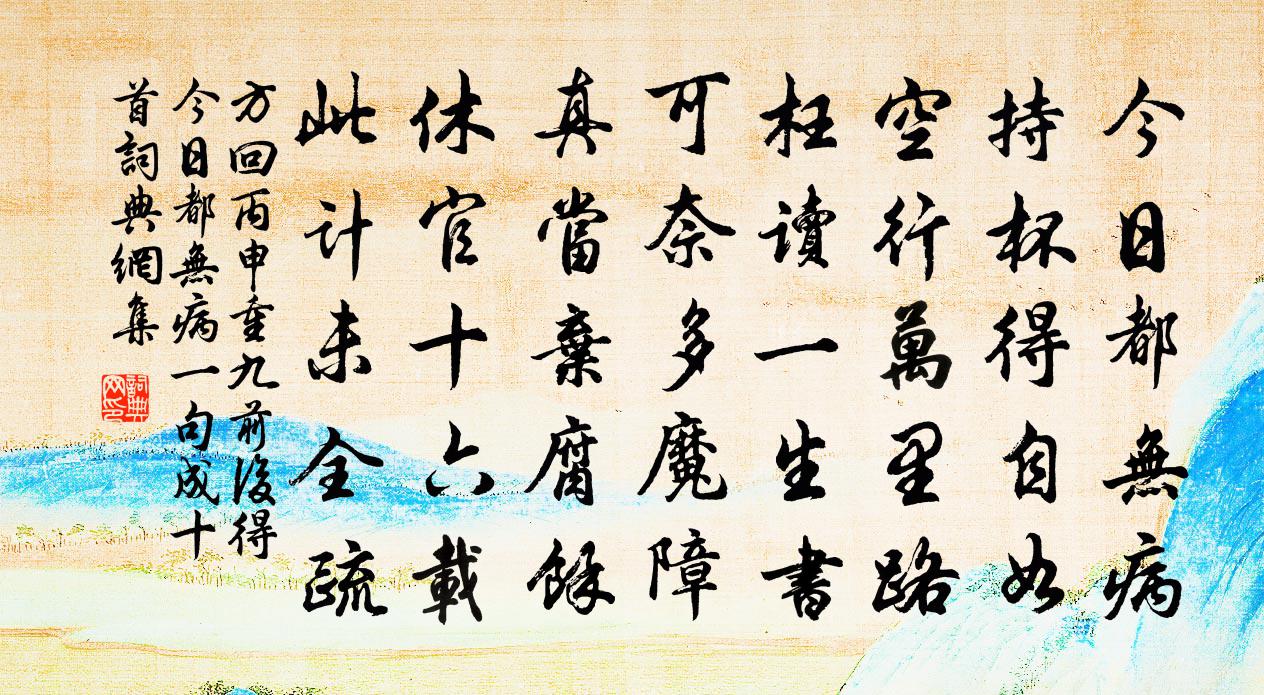 今日都無病
持杯得自如
空行萬里路
枉讀一生書
可奈多魔障
真當棄腐餘
休官十六載
此计未全疏
方回丙申重九前後得
今日都無病一句成十
首詞典網集
詞典网印